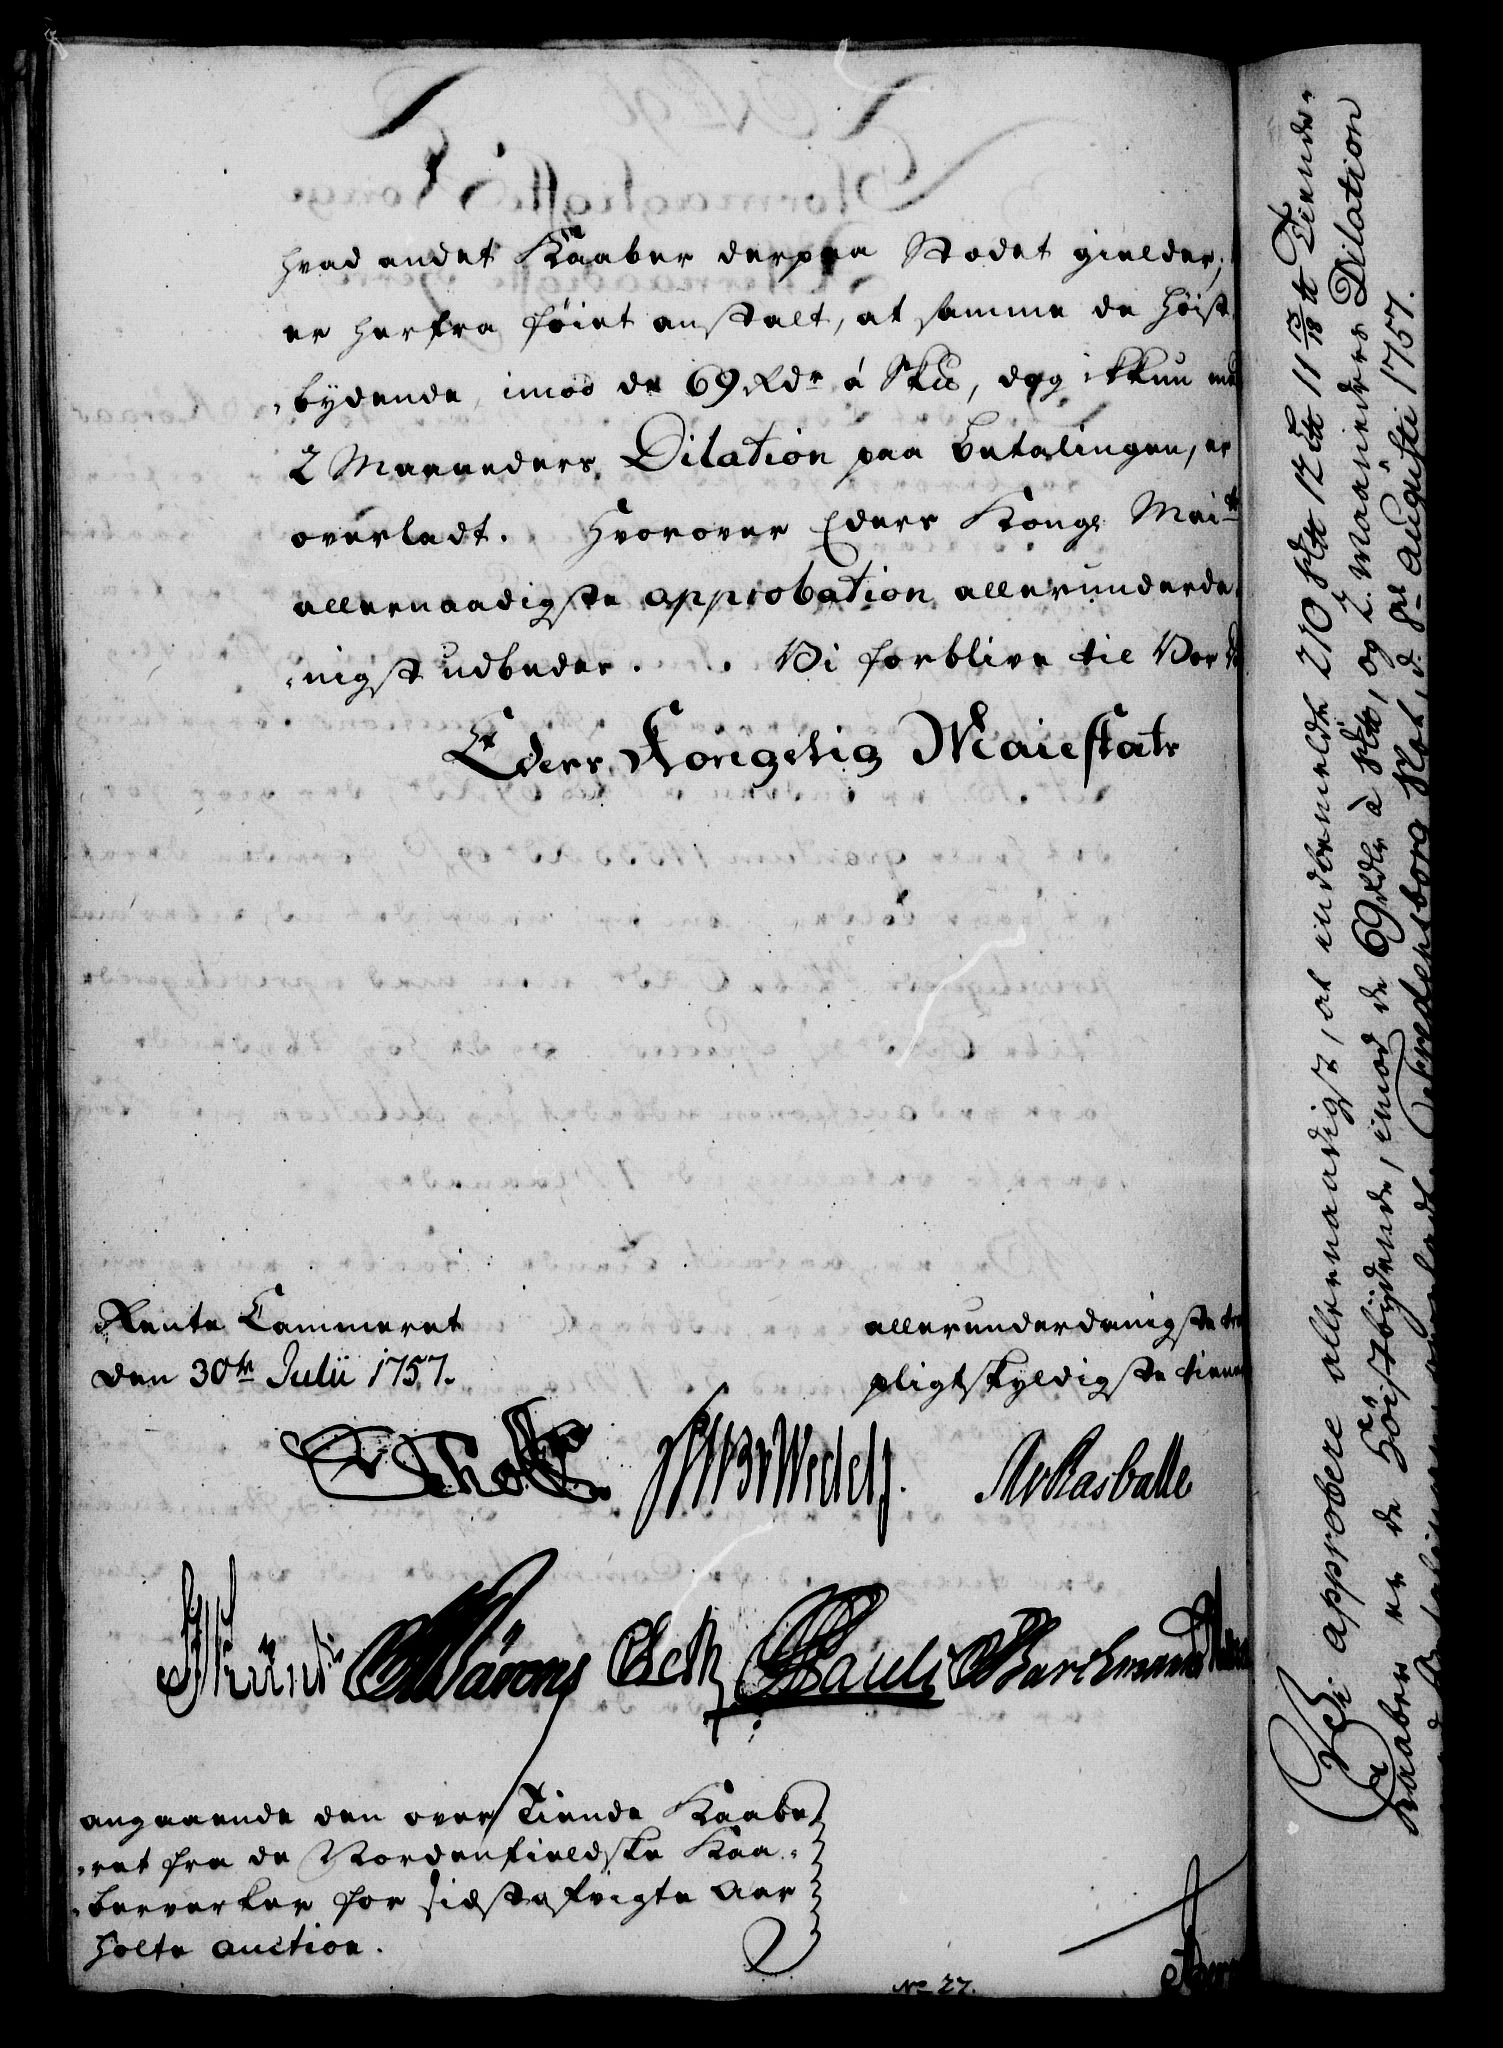 hvad andet Kaaber derpaa Stodet gielder,
er herfra föiet anstalt, at samme de Höist
bydende, imod de 69 Rdr á Sku, dog ikkun
2 Maaneders Dilation paa betalingen, er
overladt. Hvorover Eders Kongs Mai
allernaadigste approbation allerunderda
nigst udbedes. Vi forblive til Vor
Eders Kongelig Maiestats
Rente Cammeret
den 30te Julii 1757.
allerunderdanigste
pligtskyldigste
Holst
Wedel
Rasballe
Pauli
Barchmann
angaaende den over Tiende Kaabe
ret fra de Nordenfieldske Kaa
berverker for sidstafvigte Aar
holte auction.
No 27.
Vi approbere allernaadigst, at indbemeldte 210 Sk 17 11 13/18 Tiende
Kaaber er de Höistbydende, imod de 69 Rdlr à Sk, og 2 Maaneders Dilation
Betalingen overladt. Fredensborg Slot, d. Augusti 1757.